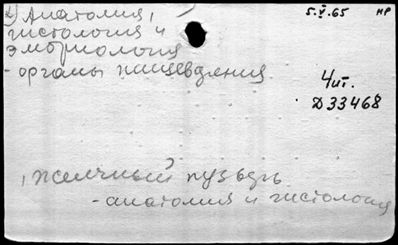 4) Анатомия,
гистология и
эмбриология
- органы пищевдения
5.V.65 НР
Чит.
Д33468
, желчный пузырь
- анатомия и гистология